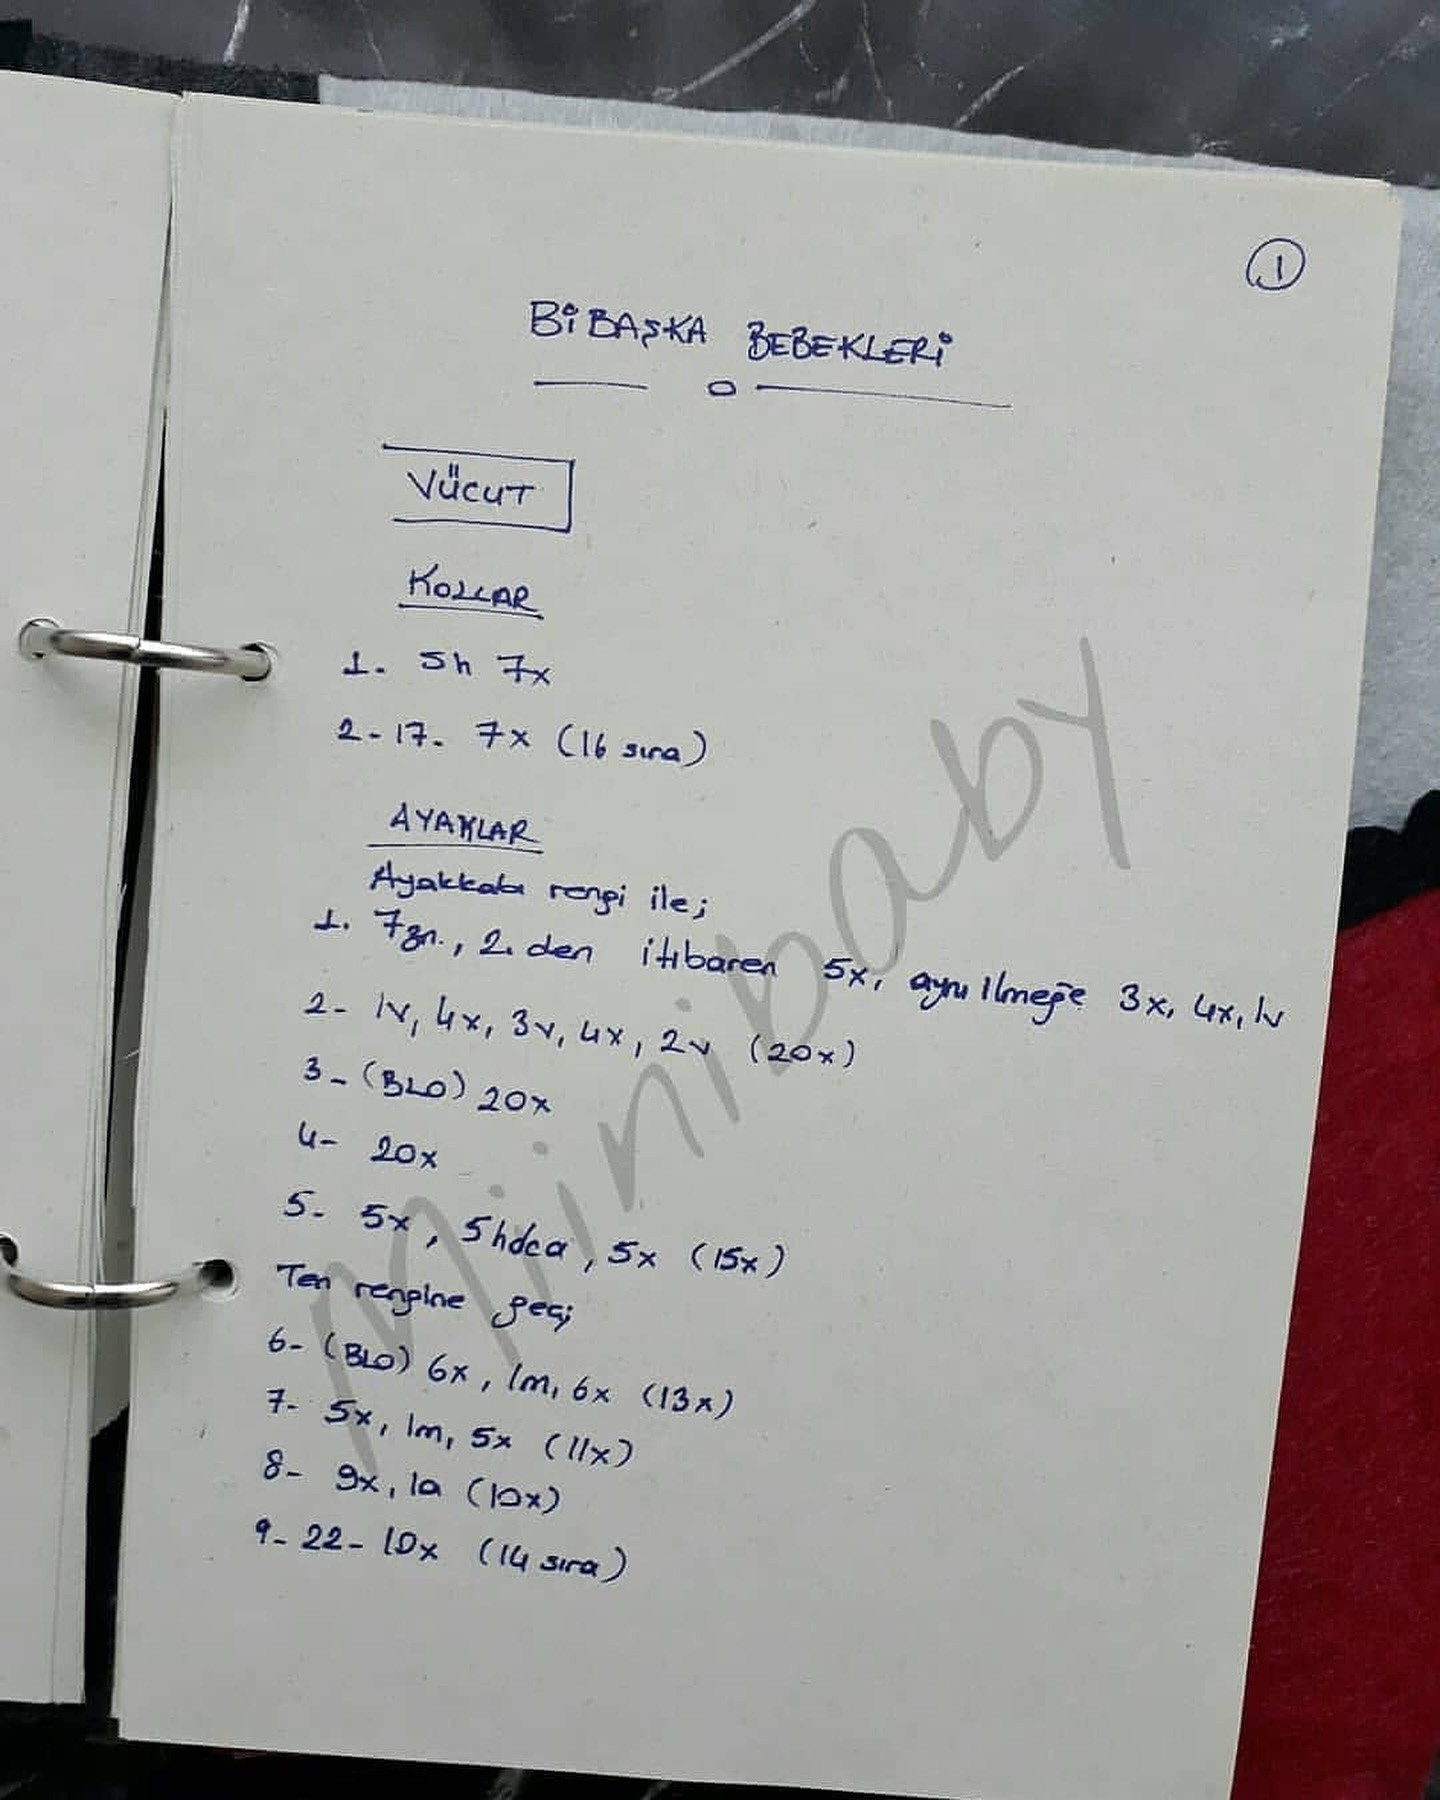 1
BİBAŞKA BEBEKLERİ
VÜCUT
KOLLAR
1. Sh 7x
2-17. 7x (16 sıra)
AYAKLAR
Ayakkabı rengi ile;
1. 7zn., 2.den itibaren 5x, aynı ilmeğe 3x, 4x, 1v
2- 1v, 4x, 3v, 4x, 2v (20x)
3- (BLO) 20x
4- 20x
5- 5x, 5hdca, 5x (15x)
Ten rengine geç;
6- (BLO) 6x, 1m, 6x (13x)
7- 5x, 1m, 5x (11x)
8- 9x, 1a (10x)
9-22- 10x (14 sıra)
Minibaby